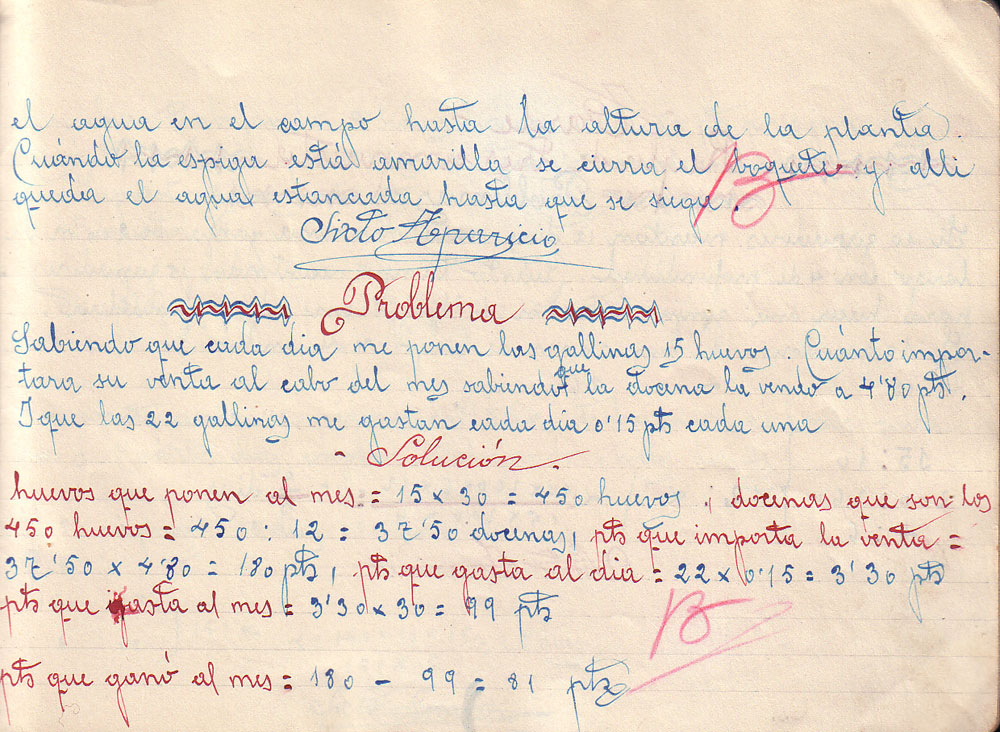 el agua en el campo hasta la altura de la planta.
Cuándo la espiga está amarilla se cierra el boquete y alli
queda el agua estancada hasta que se siega.
B
Sixto Aparicio
Problema
Sabiendo que cada dia me ponen las gallinas 15 huevos. Cuánto impor-
tara su venta al cabo del mes sabiendo que la docena la vendo a 4'80 pts.
I que las 22 gallinas me gastan cada dia 0'15 pts cada una
- Solución.
huevos que ponen al mes = 15 x 30 = 450 huevos, docenas que son los
450 huevos = 450 : 12 = 37'50 docenas, pts que importa la venta =
37'50 x 4'80 = 180 pts, pts que gasta al dia = 22 x 0'15 = 3'30 pts
pts que gasta al mes = 3'30 x 30 = 99 pts
B
pts que ganó al mes = 180 - 99 = 81 pts